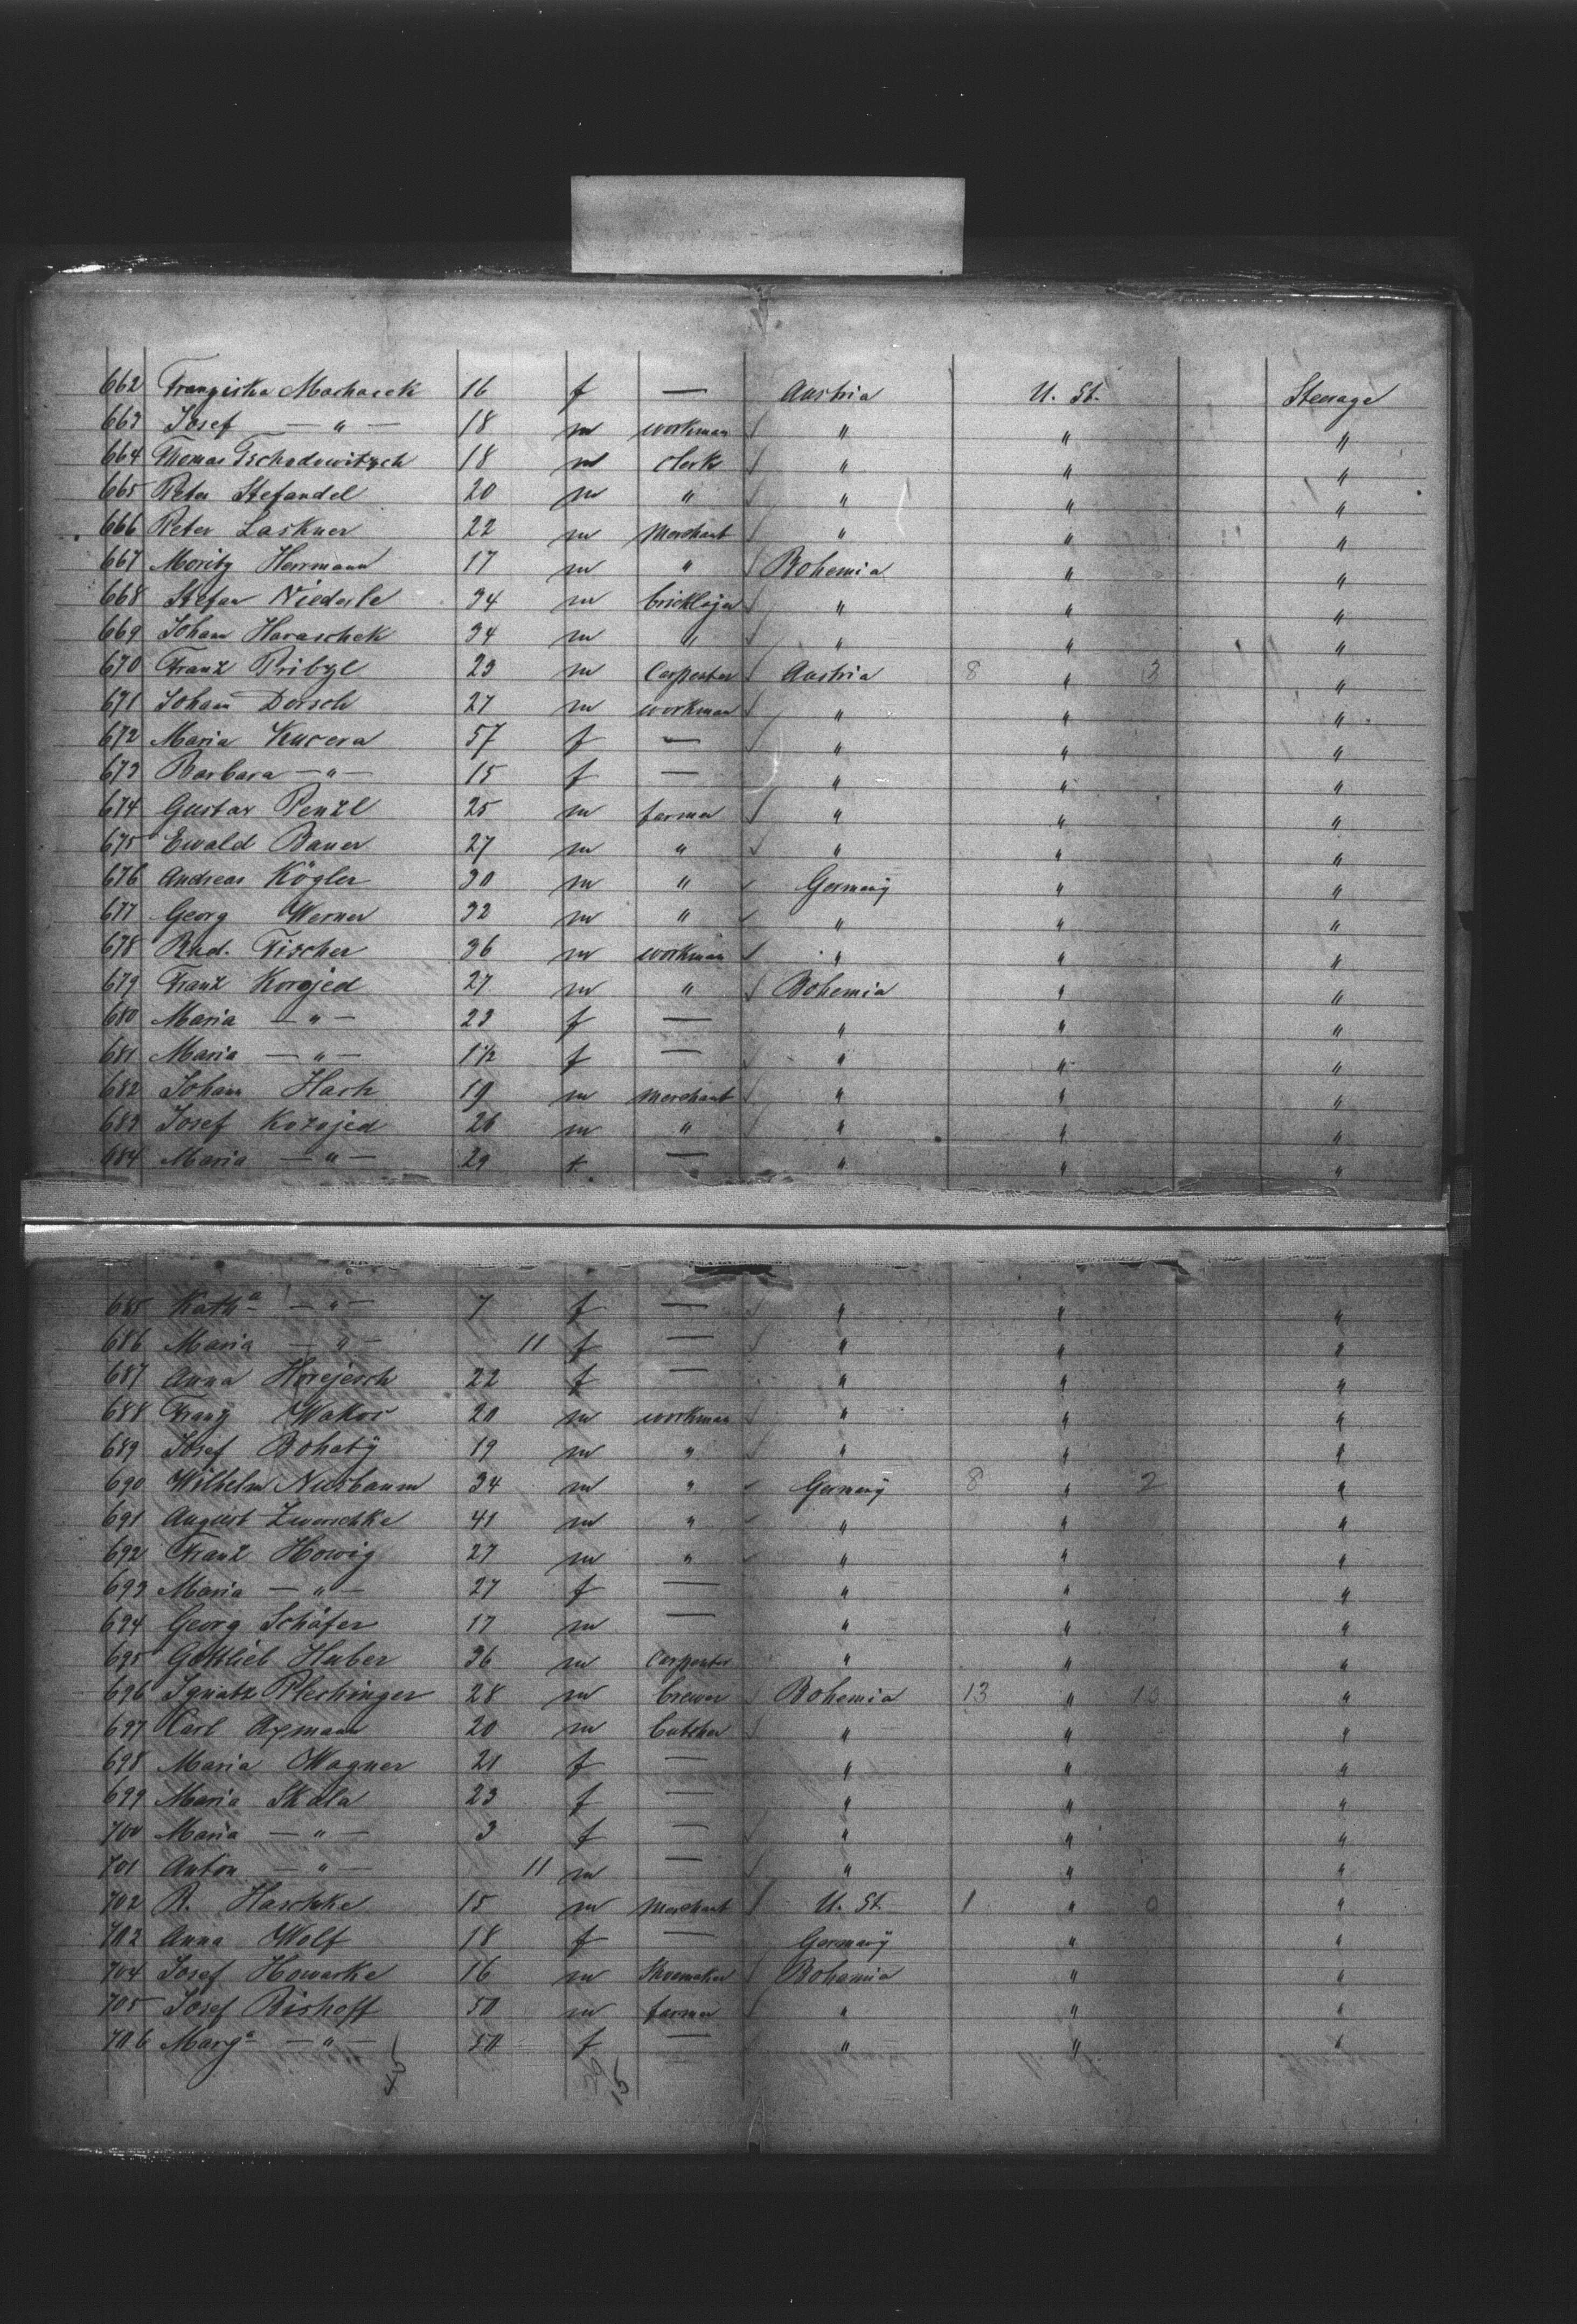 662 Franziska Machacek 16 f — Austria U. St. Steerage
663 Josef — " — 18 m workman " " "
664 Thomas Tschadowitzch 18 m clerk " " "
665 Peter Stefandel 20 m " " " "
666 Peter Laskner 22 m Merchant " " "
667 Moritz Herrmann 17 m " Bohemia " "
668 Stefan Niederle 34 m bricklayer " " "
669 Johann Haraschek 34 m " " " "
670 Franz Pribyl 23 m Carpenter Austria 8 " 3 "
671 Johann Dorsch 27 m workman " " "
672 Maria Kucera 57 f — " " "
673 Barbara — " — 15 f — " " "
674 Gustav Penzl 25 m farmer " " "
675 Ewald Bauer 27 m " " " "
676 Andreas Kögler 30 m " Germany " "
677 Georg Werner 32 m " " " "
678 Rud. Fischer 36 m workman " " "
679 Franz Korojed 27 m " Bohemia " "
680 Maria — " — 23 f — " " "
681 Maria — " — 1 1/2 f — " " "
682 Johann Hach 19 m Merchant " " "
683 Josef Kozojed 26 m " " " "
684 Maria — " — 29 f — " " "
685 Kath a — " — 7 f — " " "
686 Maria — " — 11 f — " " "
687 Anna Horejesch 22 f — " " "
688 Franz Wokos 20 m workman " " "
689 Josef Bohatÿ 19 m " " " "
690 Wilhelm Nusbaum 34 m " Germany 8 " 2 "
691 August Zwerschke 41 m " " " "
692 Franz Howig 27 m " " " "
693 Maria — " — 27 f — " " "
694 Georg Schäfer 17 m — " " "
695 Gottlieb Huber 36 m Carpenter " " "
696 Ignatz Plechinger 28 m brewer Bohemia 13 " 10 "
697 Carl Axmann 20 m butcher " " "
698 Maria Wagner 21 f — " " "
699 Maria Skala 23 f — " " "
700 Maria — " — 3 f — " " "
701 Anton — " — 11 m — " " "
702 R. Haschke 15 m Merchant U. St. 1 " 0 "
703 Anna Wolf 18 f — Germany " "
704 Josef Howarke 16 m Shoemaker Bohemia " "
705 Josef Bishoff 50 m farmer " " "
706 Marg a — " — 50 f — " " "
45 15